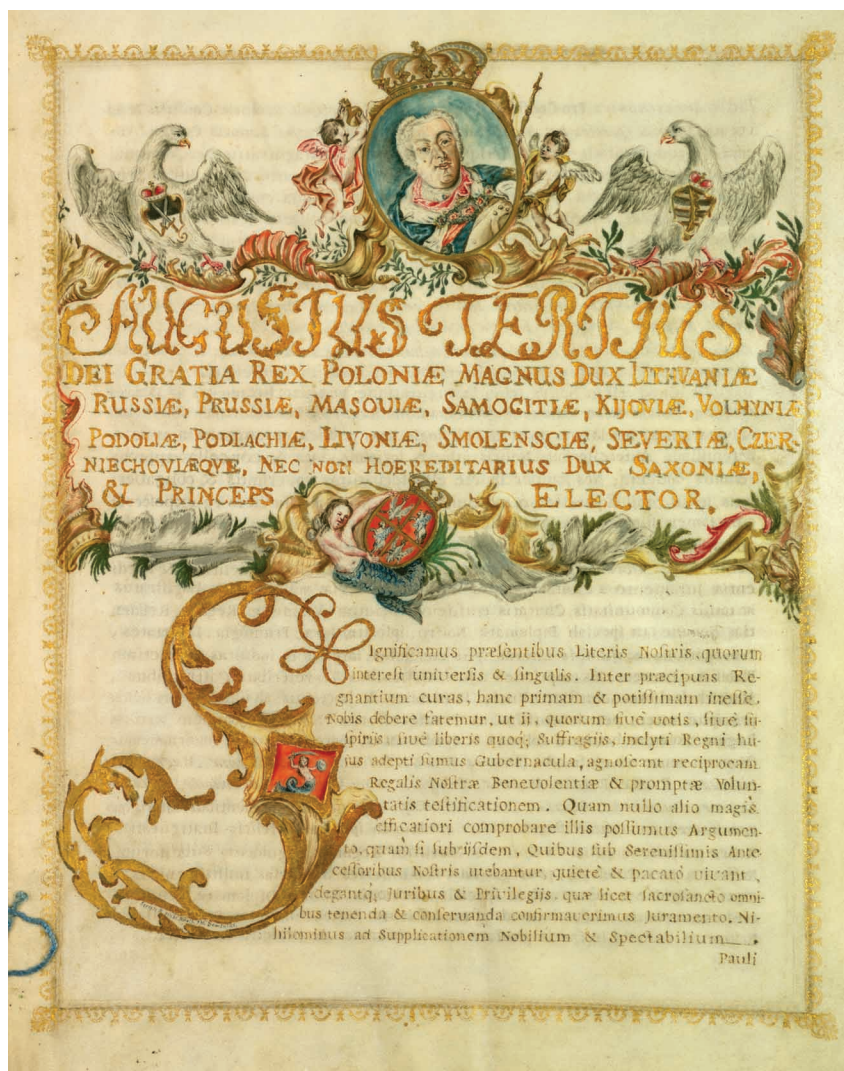 AUGUSTUS TERTIUS
DEI GRATIA REX POLONIÆ MAGNUS DUX LITHVANIÆ
RUSSIÆ, PRUSSIÆ, MASOVIÆ, SAMOGITIÆ, KIJOVIÆ, VOLHYNIÆ
PODOLIÆ, PODLACHIÆ, LIVONIÆ, SMOLENSCIÆ, SEVERIÆ, CZER-
NIECHOVIÆQVE, NEC NON HOEREDITARIUS DUX SAXONIÆ,
& PRINCEPS ELECTOR.
Significamus præsentibus Literis Nostris, quorum
interest universis & singulis. Inter præcipuas Re-
gnantium curas, hanc primam & potissimam inesse,
Nobis debere fatemur, ut ii, quorum sivè votis, sivè su-
spiriis, sivè liberis quoq; Suffragijs, inclyti Regni hu-
jus adepti sumus Gubernacula, agnoscant reciprocam
Regalis Nostræ Benevolentiæ & promptæ Volun-
tatis testificationem. Quam nullo alio magis
efficatiori comprobare illis possumus Argumen-
to, quam si sub iisdem, Quibus sub Serenissimis Ante-
cessoribus Nostris utebantur, quietè & pacatò vivant,
degantq; Juribus & Privilegijs. quæ licet sacrosancto omni-
bus tenenda & conservanda confirmaverimus Juramento. Ni-
hilominus ad Supplicationem Nobilium & Spectabilium
Pauli